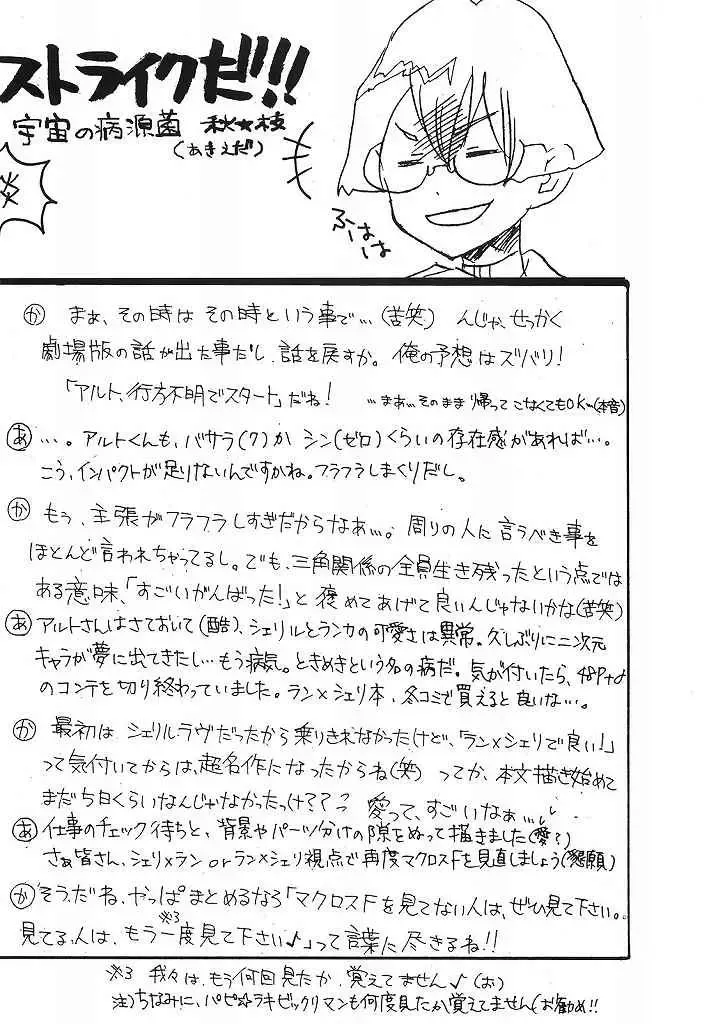 ストライクだ!!!
宇宙の病源菌 秋☆枝
(あきえだ)
炎
ふーはは
か まぁ、その時は その時という事で…(苦笑) んじゃ、せっかく
劇場版の話が出た事だし、話を戻すか。俺の予想はズバリ!
「アルト、行方不明でスタート」だね! …まぁ…そのまま帰ってこなくてもOK…(本音)
あ …。アルトくんも、バサラ(7)か シン(ゼロ)くらいの存在感があれば…。
こう、インパクトが足りないんですかね。フラフラしまくりだし。
か もぅ、主張がフラフラしすぎだからなぁ…。周りの人に言うべき事を
ほとんど言われちゃってるし。でも、三角関係の全員生き残ったという点では
ある意味、「すごいがんばった!」と 褒めてあげて良いんじゃないかな(苦笑)
あ アルトさんはさておいて(酷)、シェリルとランカの可愛さは異常。久しぶりに二次元
キャラが夢に出てきたし…もう病気。ときめきという名の病だ。気が付いたら、48P+α
のコンテを切り終わっていました。ラン×シェリ本、冬コミで買えると良いな…。
か 最初は シェリルラヴだったから乗りきれなかったけど、「ラン×シェリで良い!」
って気付いてからは、超名作になったからね(笑) ってか、本文描き始めて
まだ5日くらいなんじゃなかったっけ??? 愛って、すごいなぁ…
あ 仕事のチェック待ちと、背景やパーツ分けの隙をぬって描きました(愛?)
さぁ皆さん、シェリ×ラン or ラン×シェリ視点で再度マクロスFを見直しましょう(懇願)
か そうだね、やっぱまとめるなら「マクロスFを見てない人は、ぜひ見て下さい。
見てる人は、もう一度※3見て下さい♪」って言葉に尽きるね!!
※3 我々は、もう何回見たか、覚えてません♪(お)
注)ちなみに、パピ☆ラキビックリマンも何度見たか覚えてません(お勧め!!